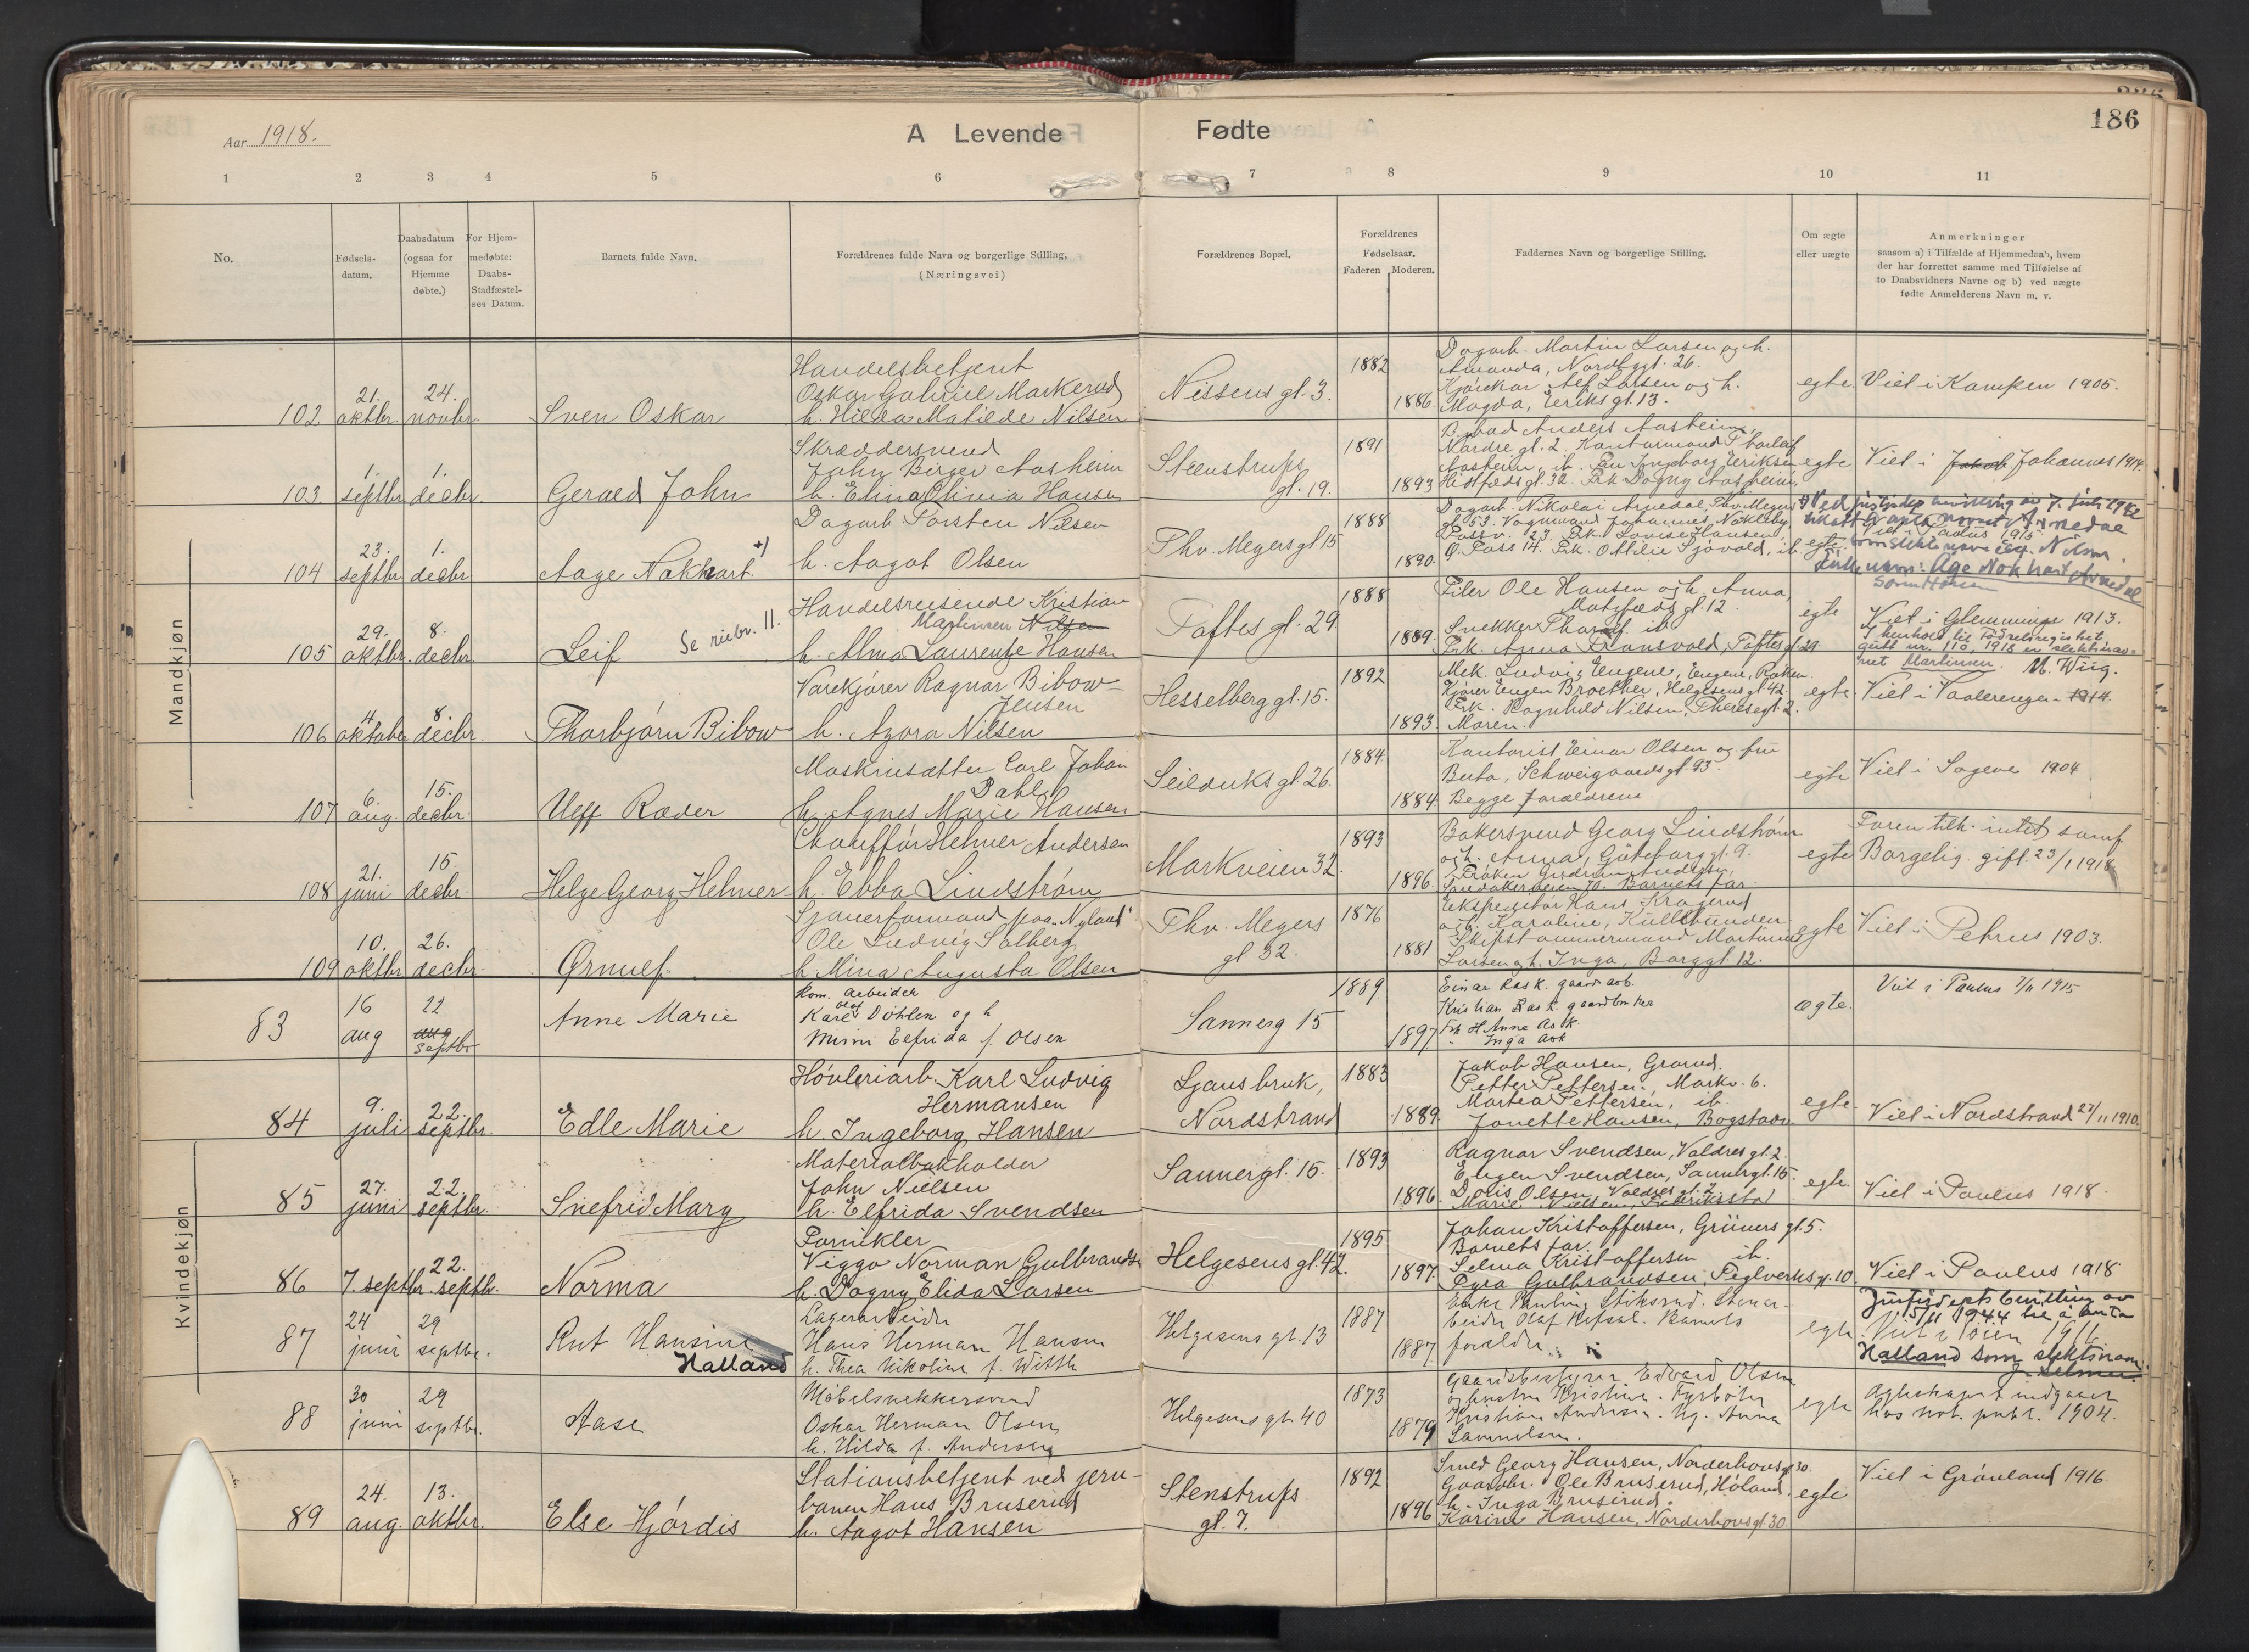 186
Aar 1918.
A Levende Fødte
1 2 3 4 5 6 7 8 9 10 11
No.
Fødsels-
datum.
Daabsdatum
(ogsaa for
Hjemme
døbte.)
For Hjem-
medøbte:
Daabs-
Stadfæstel-
ses Datum.
Barnets fulde Navn.
Forældrenes fulde Navn og borgerlige Stilling.
(Næringsvei)
Forældrenes Bopæl.
Forældrenes
Fødselsaar.
Faderen Moderen.
Faddernes Navn og borgerlige Stilling.
Om ægte
eller uægte
Anmerkninger
saasom a) i Tilfælde af Hjemmedaab, hvem
der har forrettet samme med Tilføielse af
to Daabsvidners Navne og b) ved uægte
fødte Anmelderens Navn m. v.
Mandkjøn
102
21.
oktbr.
24.
novbr.
Sven Oskar
Handelsbetjent
Oskar Gabriel Markerud
h. Hilda Matilde Nilsen
Nissens gt. 3.
1882
1886
Dagarb. Martin Larsen og h.
Amanda, Nordbygt. 26.
Kjørekar Alf Larsen og h.
Magda, Eriks gt. 13.
egte.
Viet i Kampen 1905.
103
1.
septbr.
1.
decbr.
Gerald John
Skræddersvend
John Birger Aasheim
h. Elina Olivia Hansen
Steenstrups
gt. 19.
1891
1893
Anders Aasheim,
Nordre gt. 2. Kontormand Thorleif
Aasheim, ib. Frk Ingeborg Eriksen
gt. 32. Frk Dagny Aasheim,
egte
Viet i Jakob Johannes 1914.
104
23.
septbr.
1.
decbr
Aage Nokhart. +)
Dagarb. Torsten Nilsen
h. Aagot Olsen
Thv. Meyers gt 15
1888
1890.
Dagarb. Nikolai Arnedal, Thv. Meyers
gt. 53. Vognmand Johannes Nökleby,
Fossv. 23. Frk. Lovise Hansen,
Ø. Foss 14. Frk. Ottilie Sjøvold, ib.
egte.
Viet i Paulus 1915
+) Ved justisdep. bevilling av 7. juli 1942
tillatt å anta navnet Arnedal
som slektsnavn istf. Nilsen.
Fulle navn: Åge Nokhart Arnedal
105
29.
oktbr.
8.
decbr
Leif
Se rubr. 11.
Handelsreisende Kristian
Martinsen Nilsen
h. Alma Laurentze Hansen
Toftes gt. 29
1888
1889.
Filer Ole Hansen og h. Anna,
gt. 12.
Snekker Tharalf ib.
Frk. Anna Transvold, Toftes gt. 29.
egte
Viet i Glemminge 1913.
I henhold til Fødselsregistret,
gutt nr. 110, 1918 er slektsnav-
net Martinsen. M. Wiig.
106
4
oktober
8.
decbr.
Thorbjørn Bibow
Varekjører Ragnar Bibow-
Jensen
h. Azora Nilsen
Hesselberg gt. 15.
1892
1893.
Mek. Ludvig Eugene, Eugene, Røiken.
Kjører Eugen Broether, Helgesens gt 42.
Frk. Ragnhild Nilsen, Theresegt. 2.
Moren
egte.
Viet i Vaalerengen 1914.
107
6.
aug.
15.
decbr.
Ulff Ræder
Maskinsætter Carl Johan
Dahl
h. Agnes Marie Hansen
Seilduks gt 26.
1884.
1884.
Kontorist Einar Olsen og fru
Berta, Schweigaards gt. 93.
Begge forældrene
egte
Viet i Sagene 1904
108
21.
juni
15
decbr.
Helge Georg Helmer
Chauffør Helmer Andersen
h. Ebba Lindstrøm
Markveien 32.
1893
1896.
Bakersvend Georg Lindstrøm
og h. Anna, Göteborggt. 9.
Frøken Gudrun
Sandakerveien 70. Barnets far.
egte
Faren tilh. intet samf.
Borgelig gift. 23/1 1918
109
10.
oktbr
26.
decbr.
Ørnulf
Sjauerformand paa "Nyland"
Ole Ludvig Solberg
h Mina Augusta Olsen
Thv. Meyers
gt 32.
1876
1881
Ekspeditør Hans Kragerud
og h. Karoline, Kullebunden
Skipstømmermand Martinius
Larsen og h. Inga, Borggt. 12.
egte
Viet i Petrus 1903.
Kvindekjøn
83
16
aug
22
aug
septbr
Anne Marie
Kom. arbeider
Karl Olaf Døhlen og h
Mimi Elfrida f. Olsen
Sannerg 15
1889
1897
Einar Rask. gaardarb.
Kristian Rask gaardbruker
Frk H Anne Ask
" Inga Ask
ægte.
Viet i Paulus 7/11 1915
84
9.
juli
22.
septbr.
Edle Marie
Høvleriarb. Karl Ludvig
Hermansen
h. Ingeborg Hansen
Ljansbruk,
Nordstrand
1883
1889.
Jakob Hansen, Grorud.
Petter Pettersen, Markv. 6.
Martea Pettersen, ib.
Jonette Hansen, Bogstadv.
egte
Viet i Nordstrand 27/11 1910.
85
27.
juni
22.
septbr.
Snefrid Mary
Materialbokholder
John Nielsen
h. Elfrida Svendsen
Sannergt. 15.
1893
1896.
Ragnar Svendsen, Valdres gt. 2.
Eugen Svendsen, Sannergt. 15.
Doris Olsen, Valdres gt. 2.
Marie Nielsen, Fredriksstad
egte.
Viet i Paulus 1918.
86
7. septbr.
22.
septbr.
Norma
Fornikler
Viggo Norman Gulbrandsen
h. Dagny Elida Larsen
Helgesens gt. 42.
1895
1897.
Johan Kristoffersen, Grüners gt. 5.
Barnets far.
Selma Kristoffersen ib.
Dyra Gulbrandsen, Teglverks gt. 10.
Viet i Paulus 1918
87
24
juni
29
septbr.
Rut Hansine
Halland
Lagerarbeider
Hans Herman Hansen
h. Thea Nikoline f. Witth
Helgesens gt. 13
1887
1887
Enke Pauline Stiksrud. Stenar-
beider Olaf Refsal. Barnets
forældre.
egte.
Viet i Tøien 1911
Justisdepts bevilling av
15/11 1944 til å anta
Halland som slektsnavn.
88
30
juni
29
septbr.
Aase
Møbelsnekkersvend
Oskar Herman Olsen
h. Hilda f. Andersen
Helgesens gt. 40
1873
1879
Gaardsbestyrer Edvard Olsen
og hustru Kristine. Fyrbøter
Kristian Andersen. Ug. Anna
Samuelsen.
egte
Egteskapet indgaaet
hos not. publ. 1904.
89
24.
aug.
13.
oktbr.
Else Hjørdis
Stationsbetjent ved jern-
banen Hans Bruserud
h. Aagot Hansen
Stenstrups
gt. 7.
1892
1896
Smed Georg Hansen, Norderhovsgt 30.
Gaardbr. Ole Bruserud, Høland.
h. Inga Bruserud.
Karine Hansen, Norderhovsgt. 30
egte
Viet i Grønland 1916